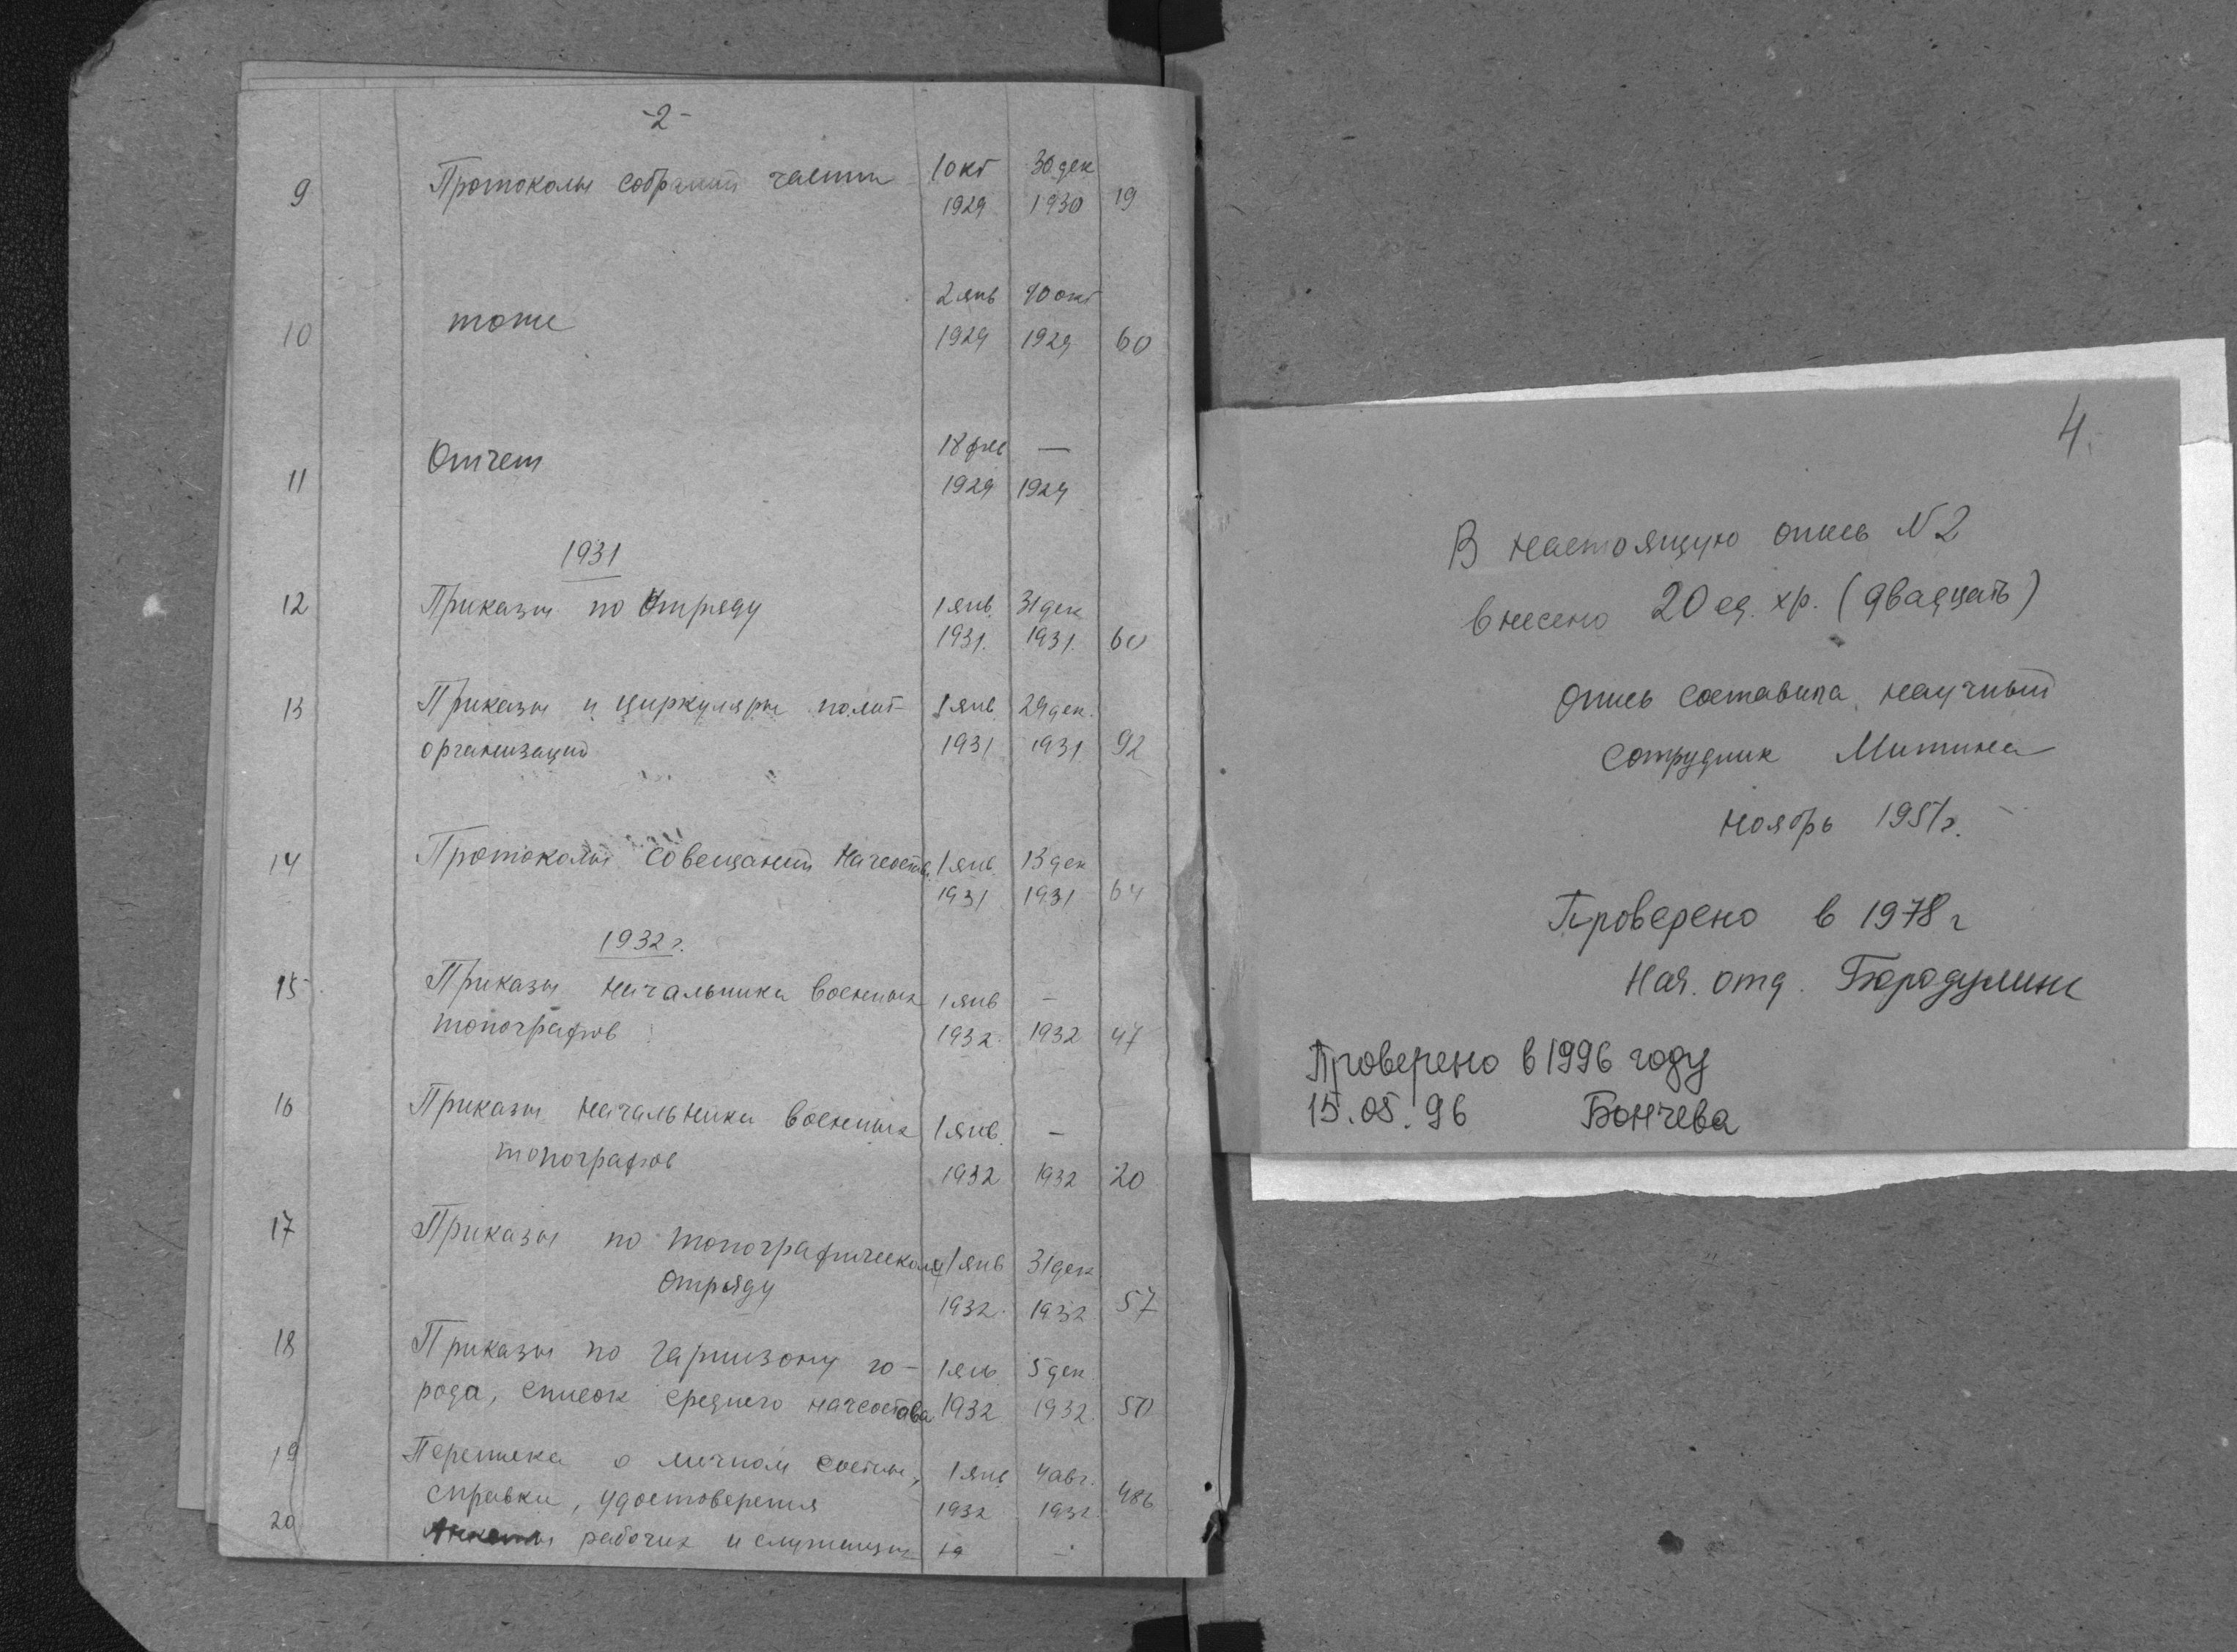 -2-
9 Протоколы собраний части 1 окт 30 дек
1929 1930 19
10 тоже 2 янв 10 окт
1929 1929 60
11 Отчет 18 фев —
1929 1929
1931
12 Приказы по Отряду 1 янв. 31 дек
1931. 1931. 60
13 Приказы и циркуляры полит 1 янв 29 дек.
организаций 1931 1931 92
14 Протоколы совещаний Начсостава 1 янв. 13 дек
1931 1931 64
1932 г.
15 Приказы начальника военных 1 янв —
топографов 1932. 1932 47
16 Приказы начальника военных 1 янв. —
топографов 1932 1932 20
17 Приказы по топографическому 1 янв 31 дек
отряду 1932. 1932 57
18 Приказы по гарнизону го- 1 янв. 5 дек
рода, список среднего начсостава 1932 1932. 50
19 Переписка о личном составе, 1 янв 4 авг.
справки, удостоверения 1932 1932. 486
20 Анкеты рабочих и служащих —
4.
В настоящую опись N 2
внесено 20 ед. хр. (двадцать)
Опись составила научный
сотрудник Митина
ноябрь 1951 г.
Проверено в 1978 г
Нач. отд. Бородулин
Проверено в 1996 году
15.05.96 Бончева